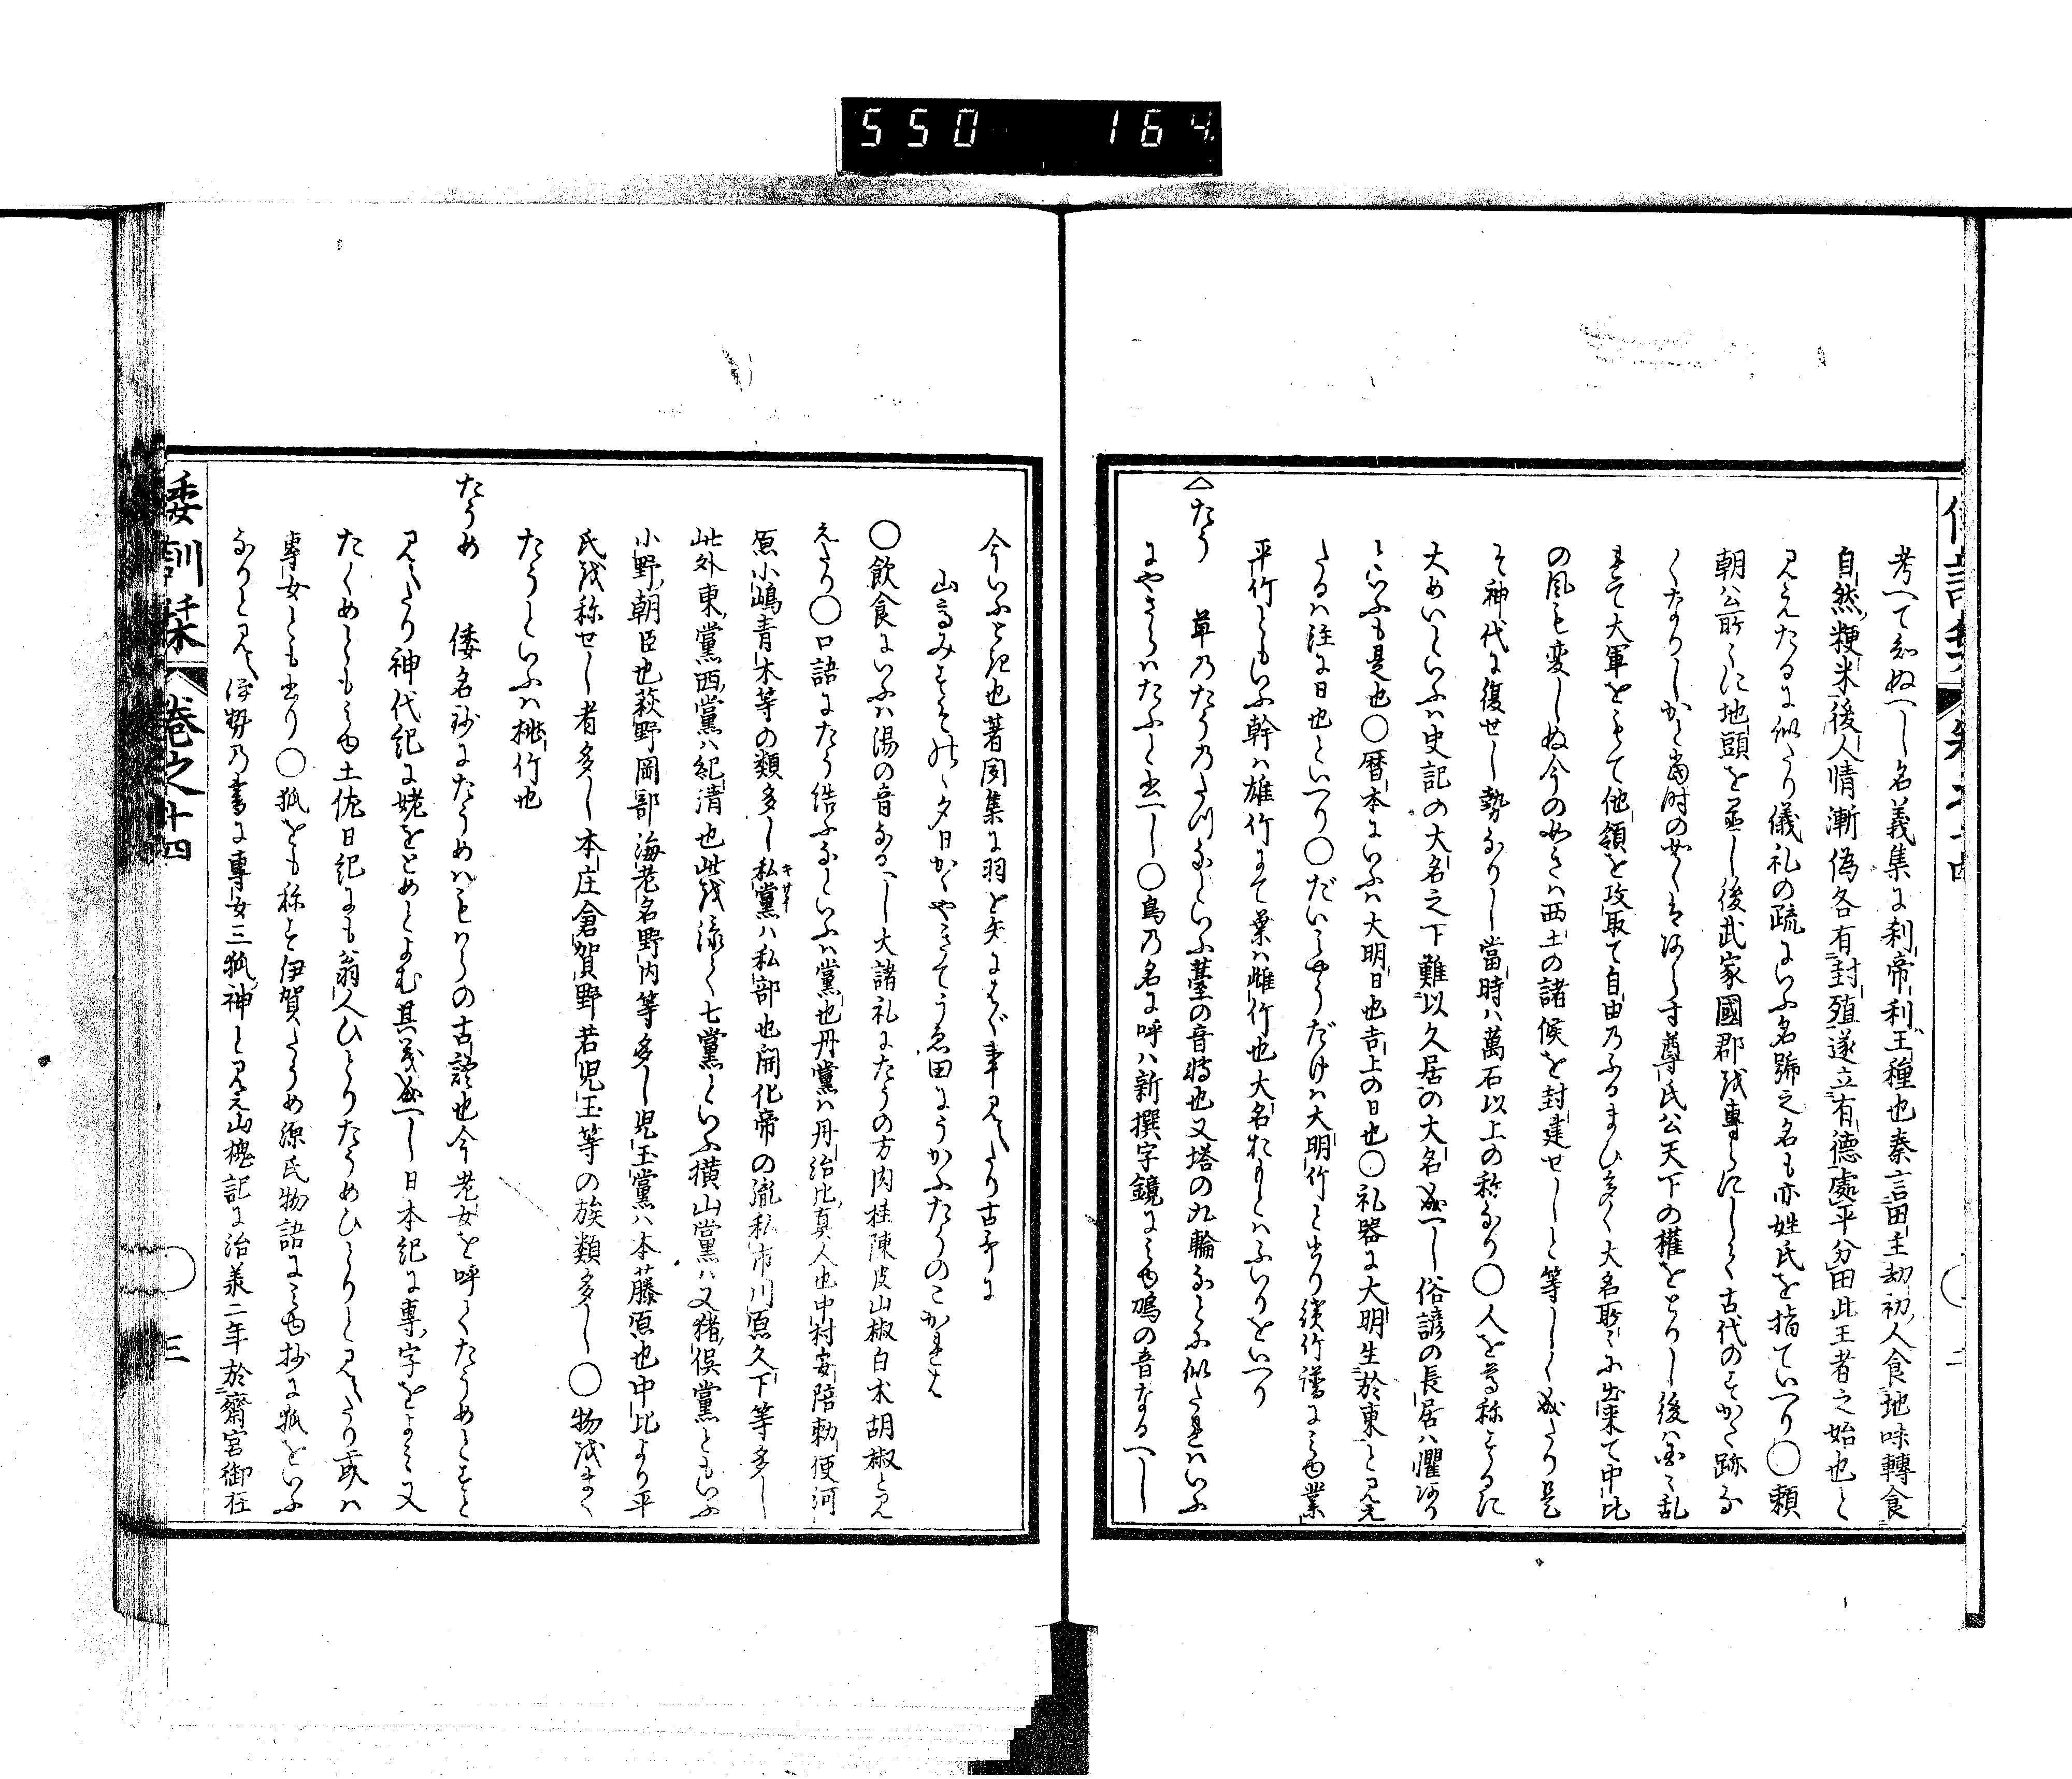 550 164
考へて知ぬへし名義集に刹帝利王種也秦言田主劫初人食地味轉食
自然粳米後人情漸偽各有封殖遂立有德處平分田此王者之始也と
見えたるに似たり儀礼の疏にいふ名號之名も亦姓氏を指ていへり○頼
朝公所々に地頭を置し後武家國郡を専らにして古代のすかた跡な
くなりしかと當時の如くはあらす尊氏公天下の權をとりし後は国々乱
れて大軍をもて他領を攻取て自由のふるまひ多く大名所々に出来て中比
の風も変しぬ今の如きは西土の諸侯を封建せしと等しく成たり是
そ神代に復せし勢なりし當時は萬石以上の称なり○人を尊称するに
大めいといふは史記の大名之下難以久居の大名成へし俗諺の長居は懼あり
といふも是也○暦本にいふは大明日也吉上の日也○礼器に大明生於東と見え
たるは注に日也といへり○だいみやうだけは大明竹と書り續竹譜にみゆ業
平竹ともいふ幹は雄竹にて葉は雌竹也大名おもとはふいりをいへり
△たう 草のたうのたつなといふ薹の音轉也又塔の九輪なとに似たれはいふ
にやさらはたふと書へし○鳥の名に呼は新撰字鏡にみゆ鴇の音なるへし
今いふとき也著聞集に羽を矢にはく事見えたり古哥に
山高みすその夕日かゝやきてうゑ田にうかふたうのこかれは
○飲食にいふは湯の音なるへし大諸礼にたうの方肉桂陳皮山椒白朮胡椒と見
えたり○口語にたう結ふなといふは黨也丹黨は丹治比真人也中村安陪勅使河
原小嶋青木等の類多し私黨は私部也開化帝の流私市川原久下等多し
キサキ
此外東黨西黨は紀清也此を添て七黨といふ横山黨は又猪俣黨ともいふ
小野朝臣也萩野岡部海老名野内等多し児玉黨は本藤原也中比より平
氏を称せし者多し本庄倉賀野若児玉等の族類多し○物をまく
たうといふは桃竹也
たうめ 倭名抄にたうめはもはらの古語也今老女を呼てたうめとすと
見えたり神代紀に姥をとめとよむ其義成へし日本紀に專字をよみ又
たくめともみゆ土佐日記にも翁人ひとりたうめひとりと見えたり或は
專女とも書り○狐をも称す伊賀たうめ源氏物語にみゆ抄に狐をいふ
なりと見ゆ伊勢の書に專女三狐神と見え山槐記に治美二年於齋宮御在
倭訓栞 卷之十四 ○ 三